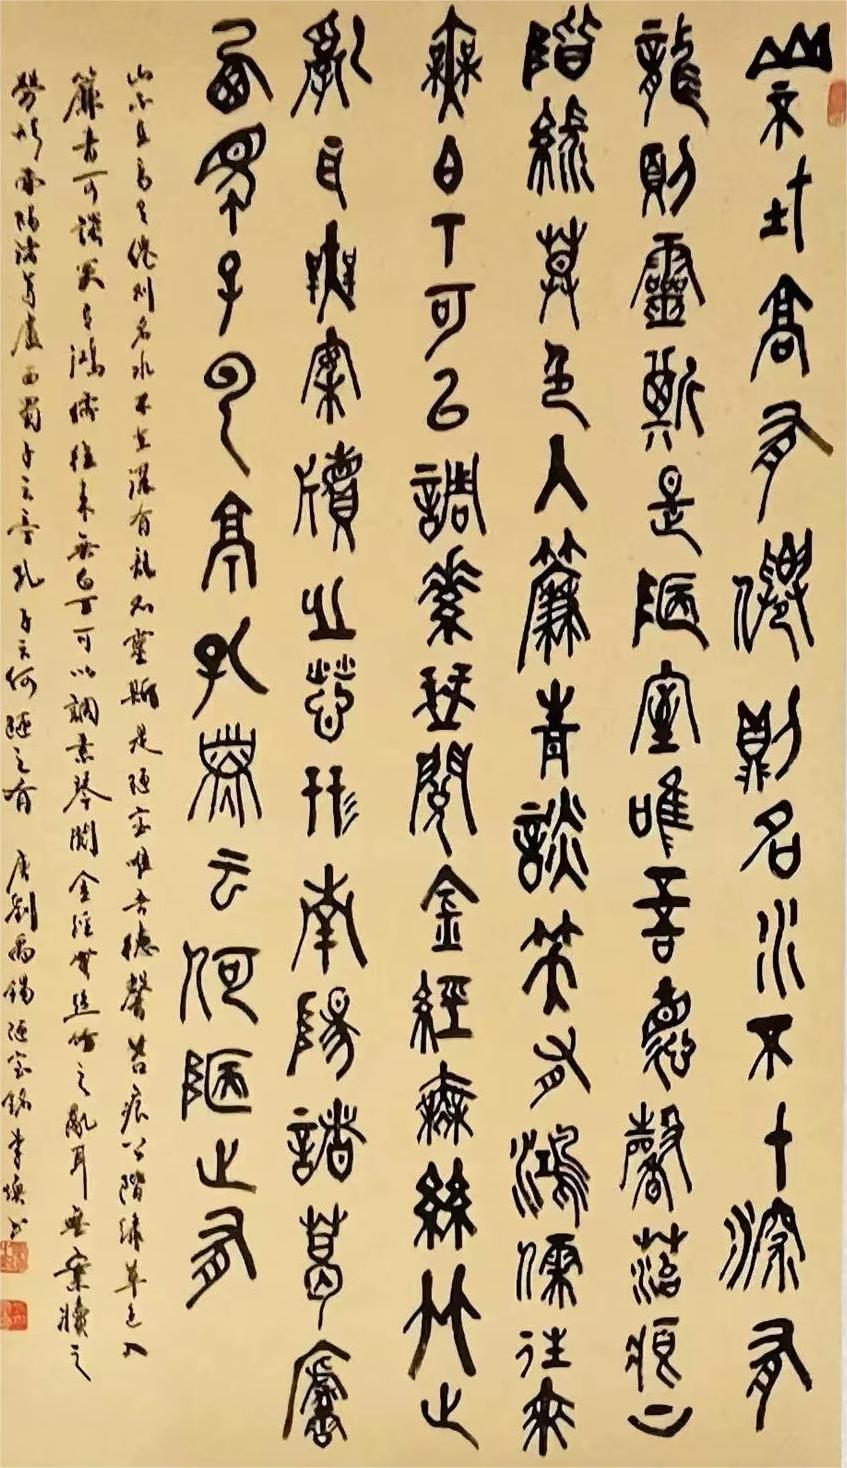 山不在高有僊則名水不在深有
龍則靈斯是陋室唯吾德馨苔痕上
階綠草色入簾青談笑有鴻儒往來
無白丁可以調素琴閱金經無絲竹之
亂耳無案牘之勞形南陽諸葛廬
西蜀子云亭孔子云何陋之有
山不在高有僊則名水不在深有龍則靈斯是陋室唯吾德馨苔痕上階綠草色入
簾青可談笑有鴻儒往來無白丁可以調素琴閱金經無絲竹之亂耳無案牘之
勞形南陽諸葛廬西蜀子云亭孔子云何陋之有 唐劉禹錫陋室銘李煥书